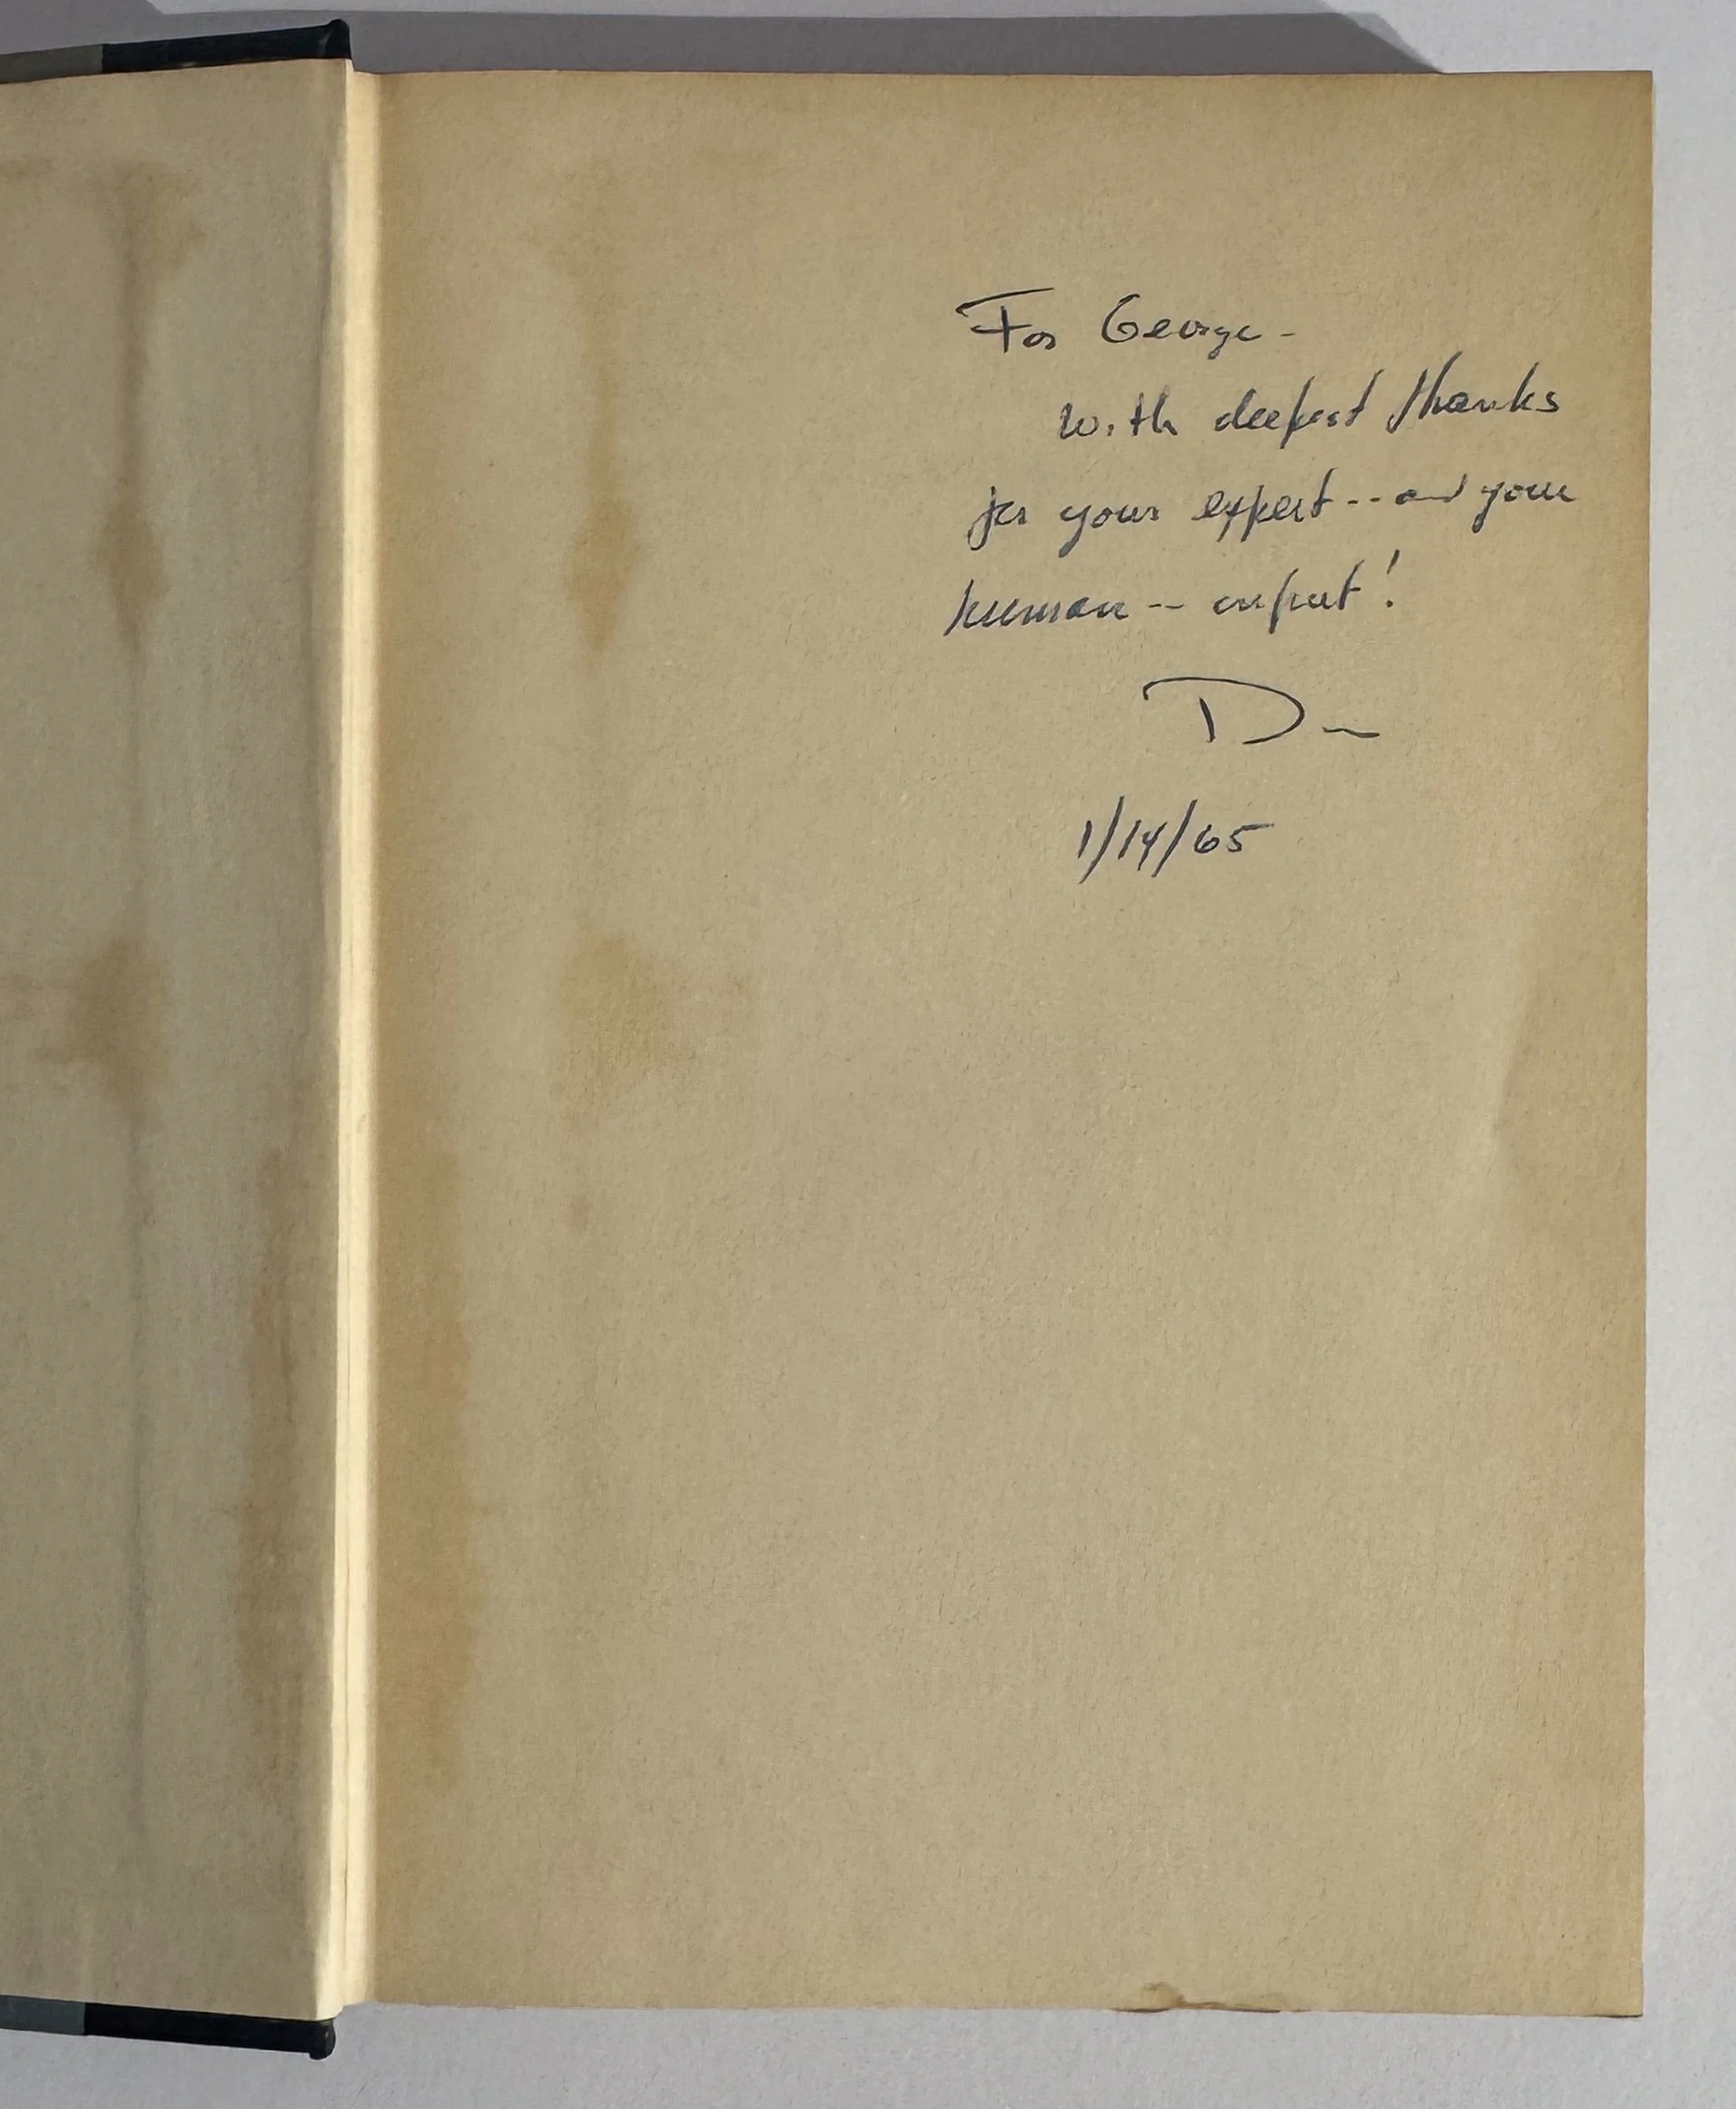 For George -
with deepest thanks
for your expert -- and your
human -- input!
D
1/14/65